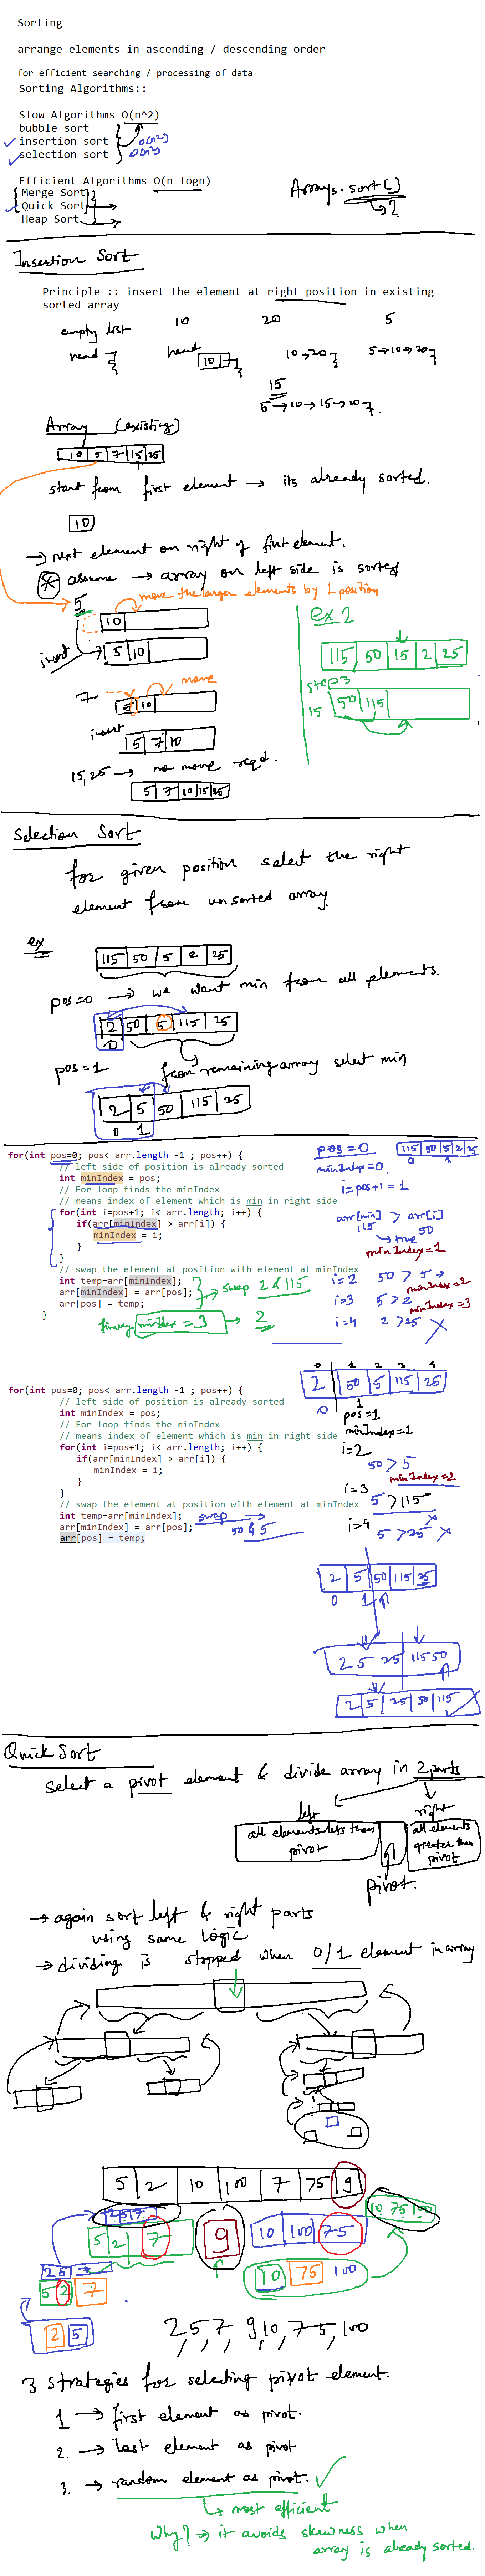 Sorting
arrange elements in ascending / descending order
for efficient searching / processing of data
Sorting Algorithms::
Slow Algorithms O(n^2)
bubble sort
insertion sort O(n²)
selection sort O(n²)
Efficient Algorithms O(n logn)
Merge Sort
Quick Sort
Heap Sort
Arrays.sort()
Insertion Sort
Principle :: insert the element at right position in existing
sorted array
empty list 10 20 5
head head 10 10→20 5→10→20
15
5→10→15→20
Array (existing)
10 5 7 15 25
start from first element → its already sorted.
10
→ next element on right of first element.
* assume → array on left side is sorted
move the larger elements by 1 position
5
10
insert 5 10
7 5 10 move
insert
5 7 10
15, 25 → no move reqd.
5 7 10 15 25
ex 2
115 50 15 2 25
step3
15 50 115
Selection Sort
for given position select the right
element from unsorted array
ex
115 50 5 2 25
pos=0 → we want min from all elements.
2 50 5 115 25
0
pos=1 from remaining array select min
2 5 50 115 25
0 1
for(int pos=0; pos< arr.length -1 ; pos++) {
// left side of position is already sorted
int minIndex = pos;
// For loop finds the minIndex
// means index of element which is min in right side
for(int i=pos+1; i< arr.length; i++) {
if(arr[minIndex] > arr[i]) {
minIndex = i;
}
}
// swap the element at position with element at minIndex
int temp=arr[minIndex];
arr[minIndex] = arr[pos];
arr[pos] = temp;
}
swap 2 & 115
finally minIndex = 3 → 2
pos = 0 115 50 5 2 25
minIndex=0
i=pos+1 = 1
arr[min] > arr[i]
115 50
true
minIndex=1
i=2 50 > 5 → minIndex=2
i=3 5>2 minIndex=3
i=4 2 >25 X
for(int pos=0; pos< arr.length -1 ; pos++) {
// left side of position is already sorted
int minIndex = pos;
// For loop finds the minIndex
// means index of element which is min in right side
for(int i=pos+1; i< arr.length; i++) {
if(arr[minIndex] > arr[i]) {
minIndex = i;
}
}
// swap the element at position with element at minIndex
int temp=arr[minIndex];
arr[minIndex] = arr[pos];
arr[pos] = temp;
swap
50 & 5
0 1 2 3 4
2 50 5 115 25
0 1
pos=1
minIndex=1
i=2
50 > 5
minIndex=2
i=3 5 >115
i=4 5 >25 X
2 5 50 115 25
0 1
2 5 25 115 50
2 5 25 50 115
Quick Sort
select a pivot element & divide array in 2 parts
left right
all elements less than pivot
all elements greater than pivot.
pivot.
→ again sort left & right parts
using same logic
→ dividing is stopped when 0/1 element in array
5 2 10 100 7 75 9
2 5 7 10 75 100
5 2 7 9 10 100 75
2 5 7 10 75 100
5 2 7
2 5
2, 5, 7, 9 10, 75, 100
3 strategies for selecting pivot element.
1 → first element as pivot.
2. → last element as pivot
3. → random element as pivot.
→ most efficient
Why? → it avoids skewness when
array is already sorted.